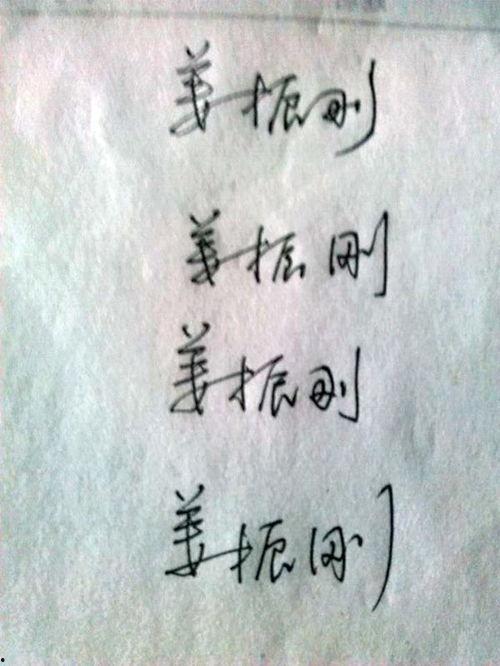 姜振刚
姜振刚
姜振刚
姜振刚